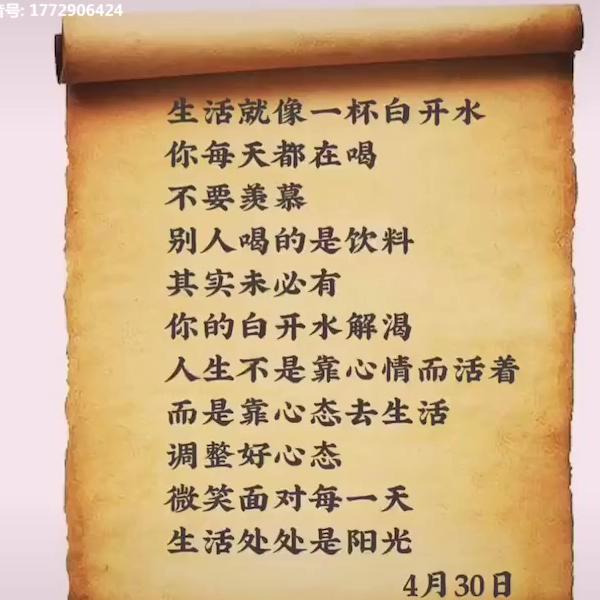 音号: 1772906424
生活就像一杯白开水
你每天都在喝
不要羡慕
别人喝的是饮料
其实未必有
你的白开水解渴
人生不是靠心情而活着
而是靠心态去生活
调整好心态
微笑面对每一天
生活处处是阳光
4月30日